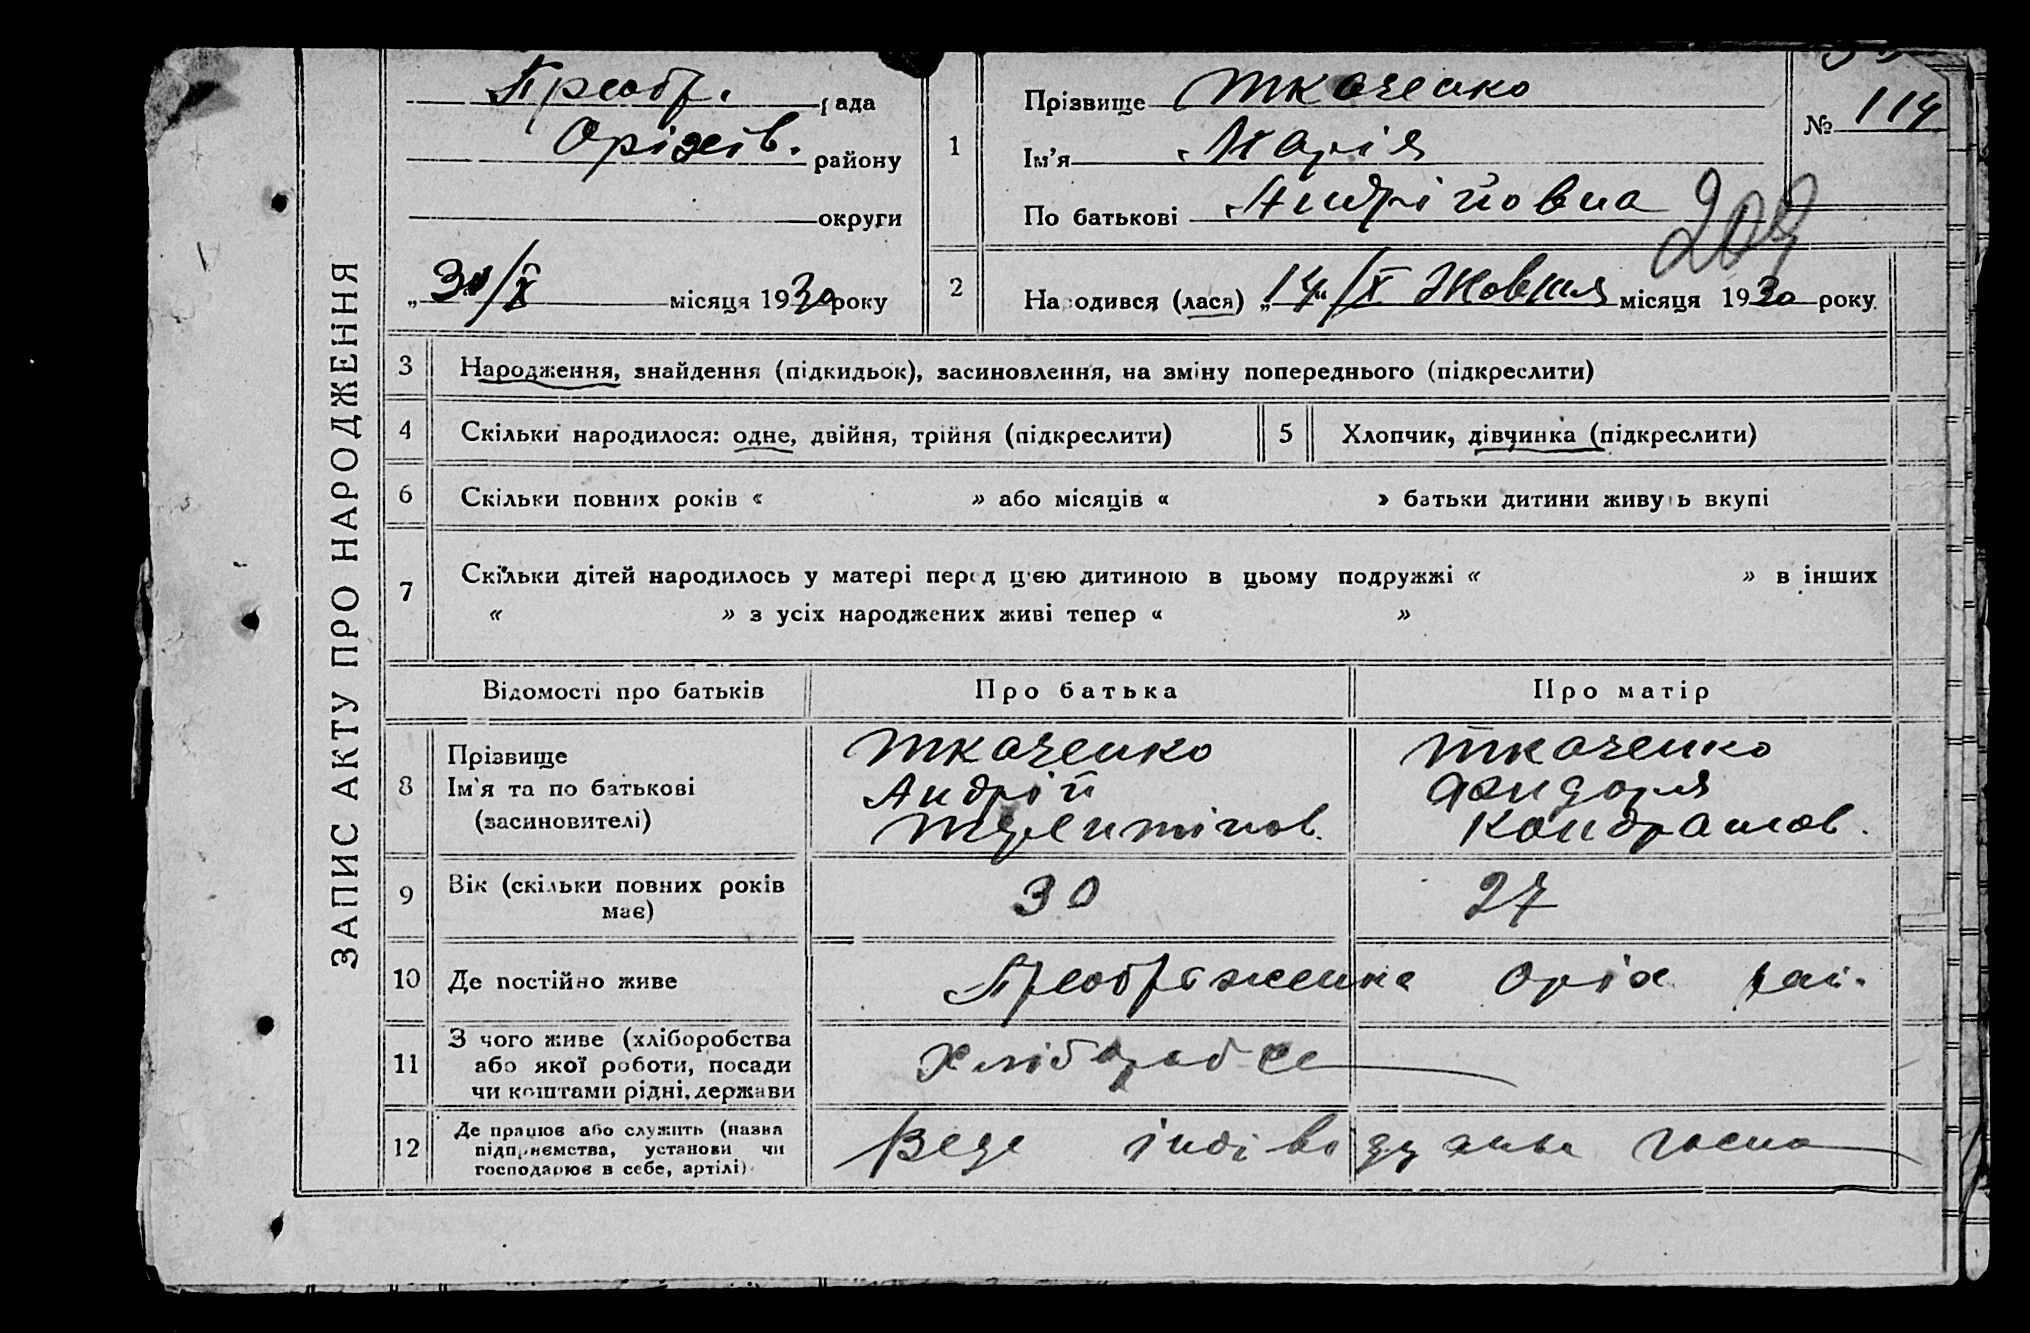 ЗАПИС АКТУ ПРО НАРОДЖЕННЯ
Преобр. рада
Оріхів. району
округи
„30/X місяця 1930 року
1
Прізвище Ткаченко
Ім'я Марія
По батькові Андрійовна
№ 114
209
2
Народився (лася) „14"/X Жовтня місяця 1930 року
3 Народження, знайдення (підкидьок), засиновлення, на зміну попереднього (підкреслити)
4 Скільки народилося: одне, двійня, трійня (підкреслити)
5 Хлопчик, дівчинка (підкреслити)
6 Скільки повних років « » або місяців « » батьки дитини живуть вкупі
7 Скільки дітей народилось у матері перед цією дитиною в цьому подружжі « » в інших
« » з усіх народжених живі тепер « »
Відомості про батьків Про батька Про матір
8 Прізвище
Ім'я та по батькові
(засиновителі)
Ткаченко
Андрій
Ткаченко
Кондратов.
9 Вік (скільки повних років
має)
30 27
10 Де постійно живе Преображенка Оріх рай.
11 З чого живе (хліборобства
або якої роботи, посади
чи коштами рідні, держави
Хліборобже
12 Де працює або служить (назва
підприємства, установи чи
господарює в себе, артілі)
Веде індівідуальне госпо